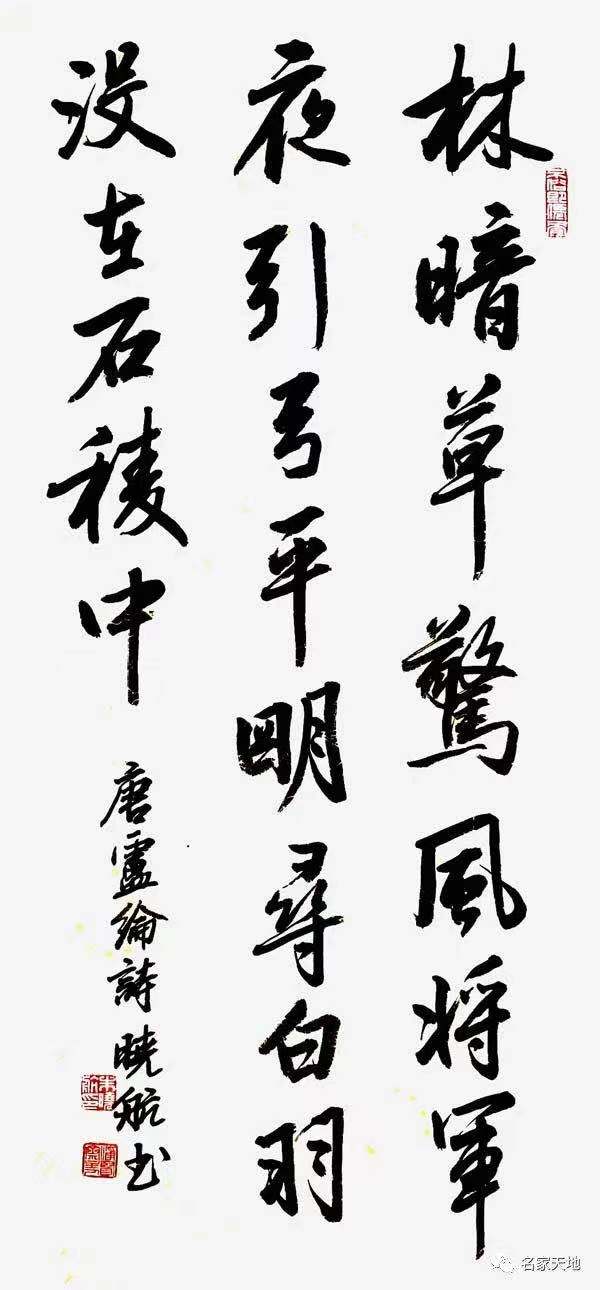 林暗草驚風将軍
夜引弓平明尋白羽
没在石稜中
唐盧綸詩 曉航书
名家天地